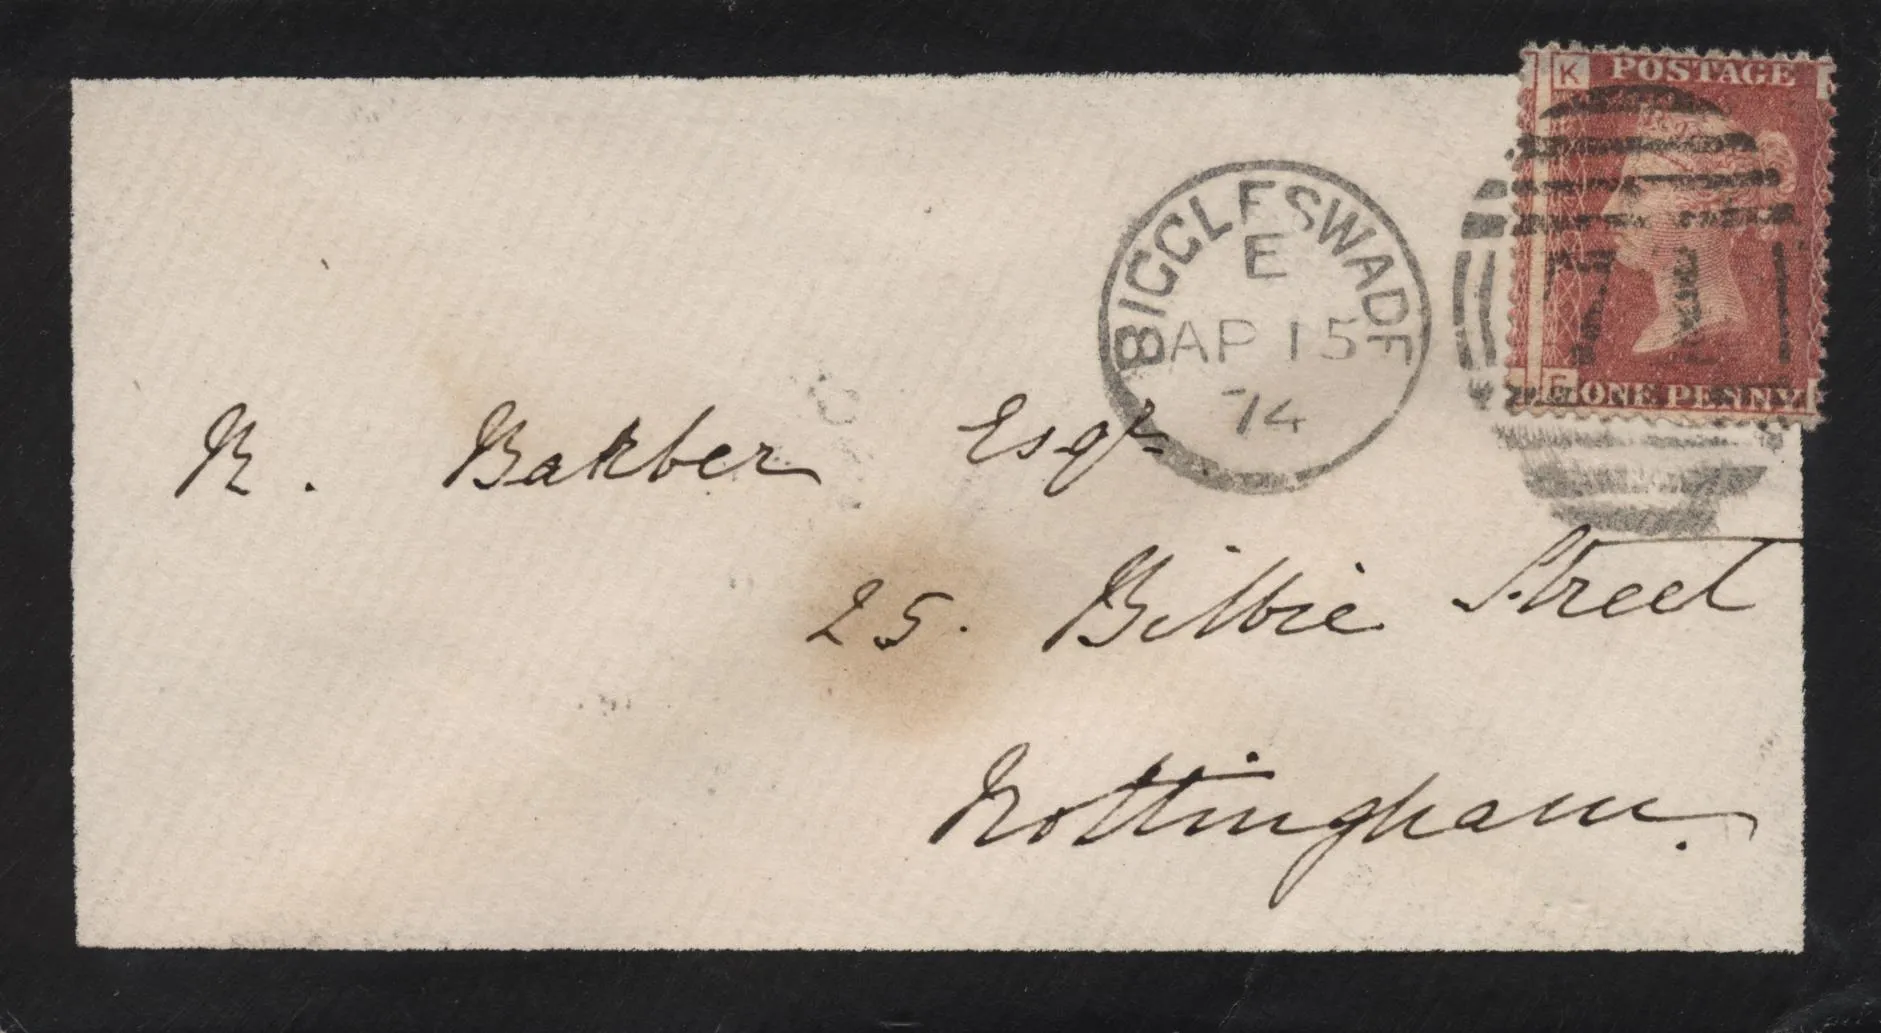 K POSTAGE
BIGGLESWADE
E
AP 15
74
71
E ONE PENNY
R. Barber Esqr
25. Bilbie Street
Nottingham.